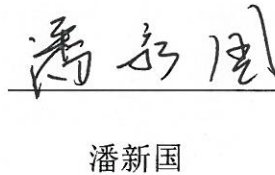 潘新国
潘新国